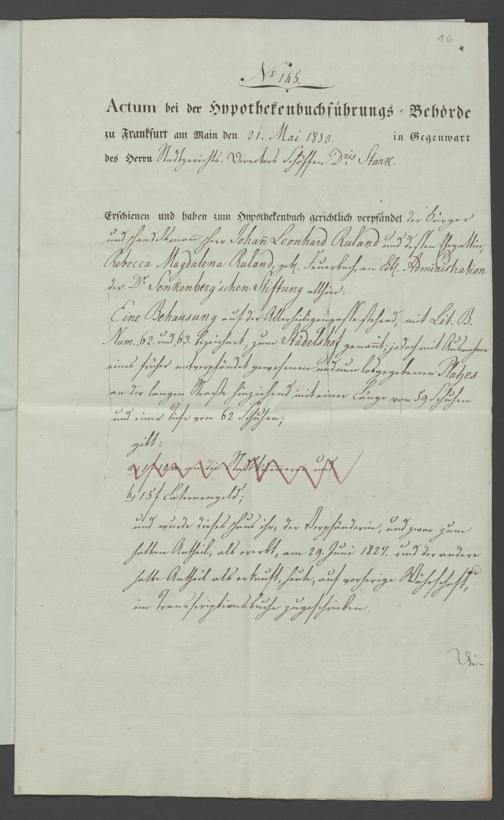 16
No 145.
Actum bei der Hypothekenbuchführungs-Behörde
zu Frankfurt am Main den 21. Mai 1830. in Gegenwart
des Herrn Stadtgerichts-Directors Schöffen Dris Stark.
Erschienen und haben zum Hypothekenbuch gerichtlich verpfändet der Bürger
und Handelsmann Herr Johañ Leonhard Ruland und dessen Ehegattin,
Rebecca Magdalena Ruland, geb. Feuerbach, an Administration
der Dr. Senkenberg'schen Stiftung allhier:
Eine Behausung auf der Allerheiligengasse stehend, mit Lit. B.
Num. 62. und 63. bezeichnet, zum Städelshof genannt; jedoch mit Ausnahme
eines früher mitverpfändet gewesenen und nun losgegebenen Platzes
an der langen Straße hinziehend mit einer Länge von 59 Schuhen
und einer Tiefe von 62 Schuhen;
gibt:
an die und
b) 15 f Laternengeld;
und wurde dieses Haus ihr, der Verpfänderin, und zwar zum
halben Antheil, als ererbt, am 29. Juni 1827. und der andere
halbe Antheil als erkauft, heute, auf vorherige Währschaft,
im Transscriptionsbuche zugeschrieben.